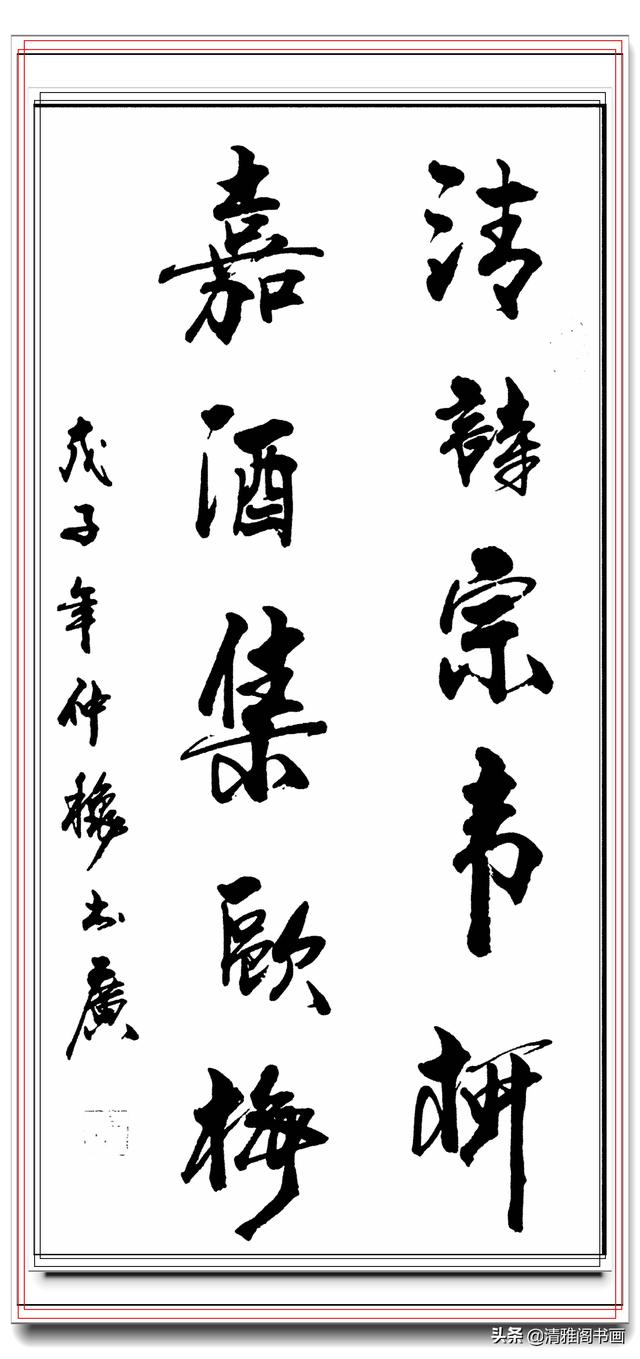 清詩宗韦柳
嘉酒集歐梅
戊子年仲廣
头条 @清雅阁书画